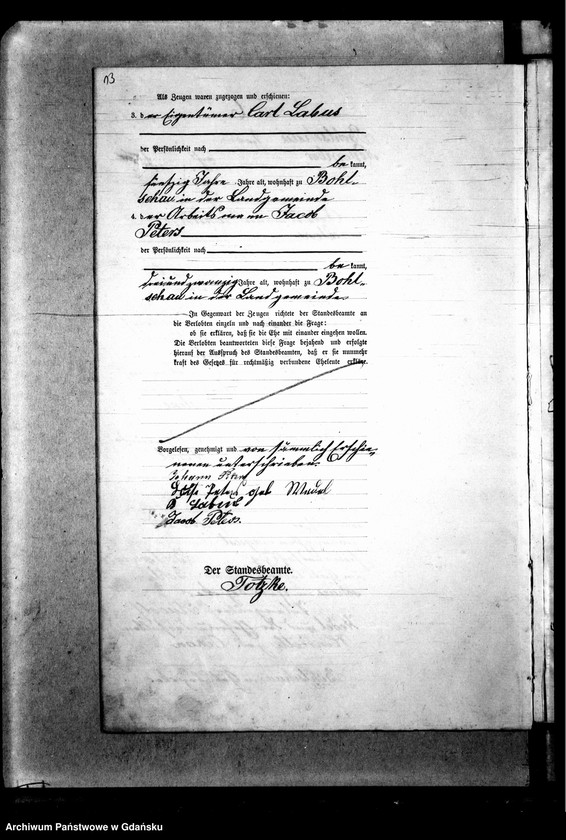 13
Als Zeugen waren zugezogen und erschienen:
3. der Eigentümer Carl Labus
der Persönlichkeit nach
be kannt,
fünfzig Jahre Jahre alt, wohnhaft zu Bohl-
schau in der Landgemeinde
4. der Arbeitsmann Jacob
Peters
der Persönlichkeit nach
be kannt,
dreiundzwanzig Jahre alt, wohnhaft zu Bohl-
schau in der Landgemeinde.
In Gegenwart der Zeugen richtete der Standesbeamte an
die Verlobten einzeln und nach einander die Frage:
ob sie erklären, daß sie die Ehe mit einander eingehen wollen.
Die Verlobten beantworteten diese Frage bejahend und erfolgte
hierauf der Ausspruch des Standesbeamten, daß er sie nunmehr
kraft des Gesetzes für rechtmäßig verbundene Eheleute erkläre.
Vorgelesen, genehmigt und von sämmtlich Erschie-
nenen unterschrieben.
Johann
Peters geb
Labus
Jacob Peters.
Der Standesbeamte.
Totzke.
Archiwum Państwowe w Gdańsku